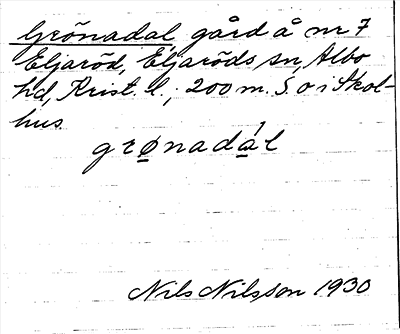 Grönadal, gård å nr 7
Eljaröd, Eljaröds sn, Albo
hd, Krist. l.; 200 m. S o i Skol-
hus.
grønada̍l
Nils Nilsson 1930